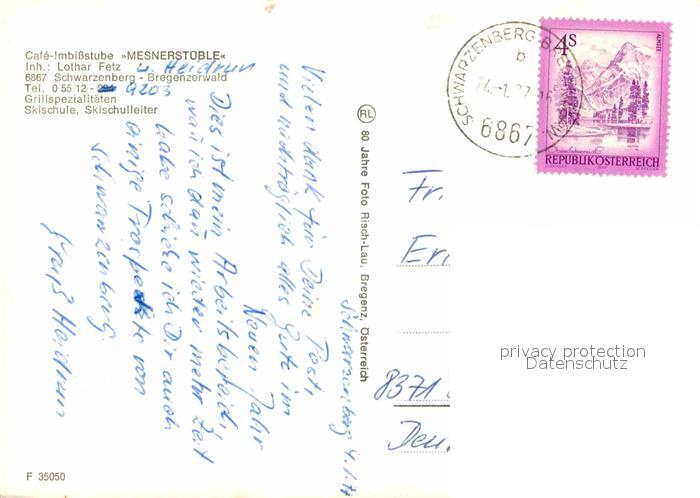 Café-Imbißstube »MESNERSTÜBLE«
Inh.: Lothar Fetz u. Heidrun
6867 Schwarzenberg - Bregenzerwald
Tel. 0 55 12 - 9203
Grillspezialitäten
Skischule, Skischulleiter
Schwarzenberg 4.1.7
Vielen dank für Deine Post,
und nachträglich alles Gute im
Neuen Jahr
Dies ist mein Arbeitsbereich,
wenn ich dann wieder mehr Zeit
habe schicke ich Dir auch
einige Prospekte von
Schwarzenberg.
Gruß Heidrun
F 35050
RL
80 Jahre Foto Risch-Lau, Bregenz, Österreich
SCHWARZENBERG
b
6867
4S
ALMSEE
REPUBLIK ÖSTERREICH
Fr.
8371
privacy protection
Datenschutz